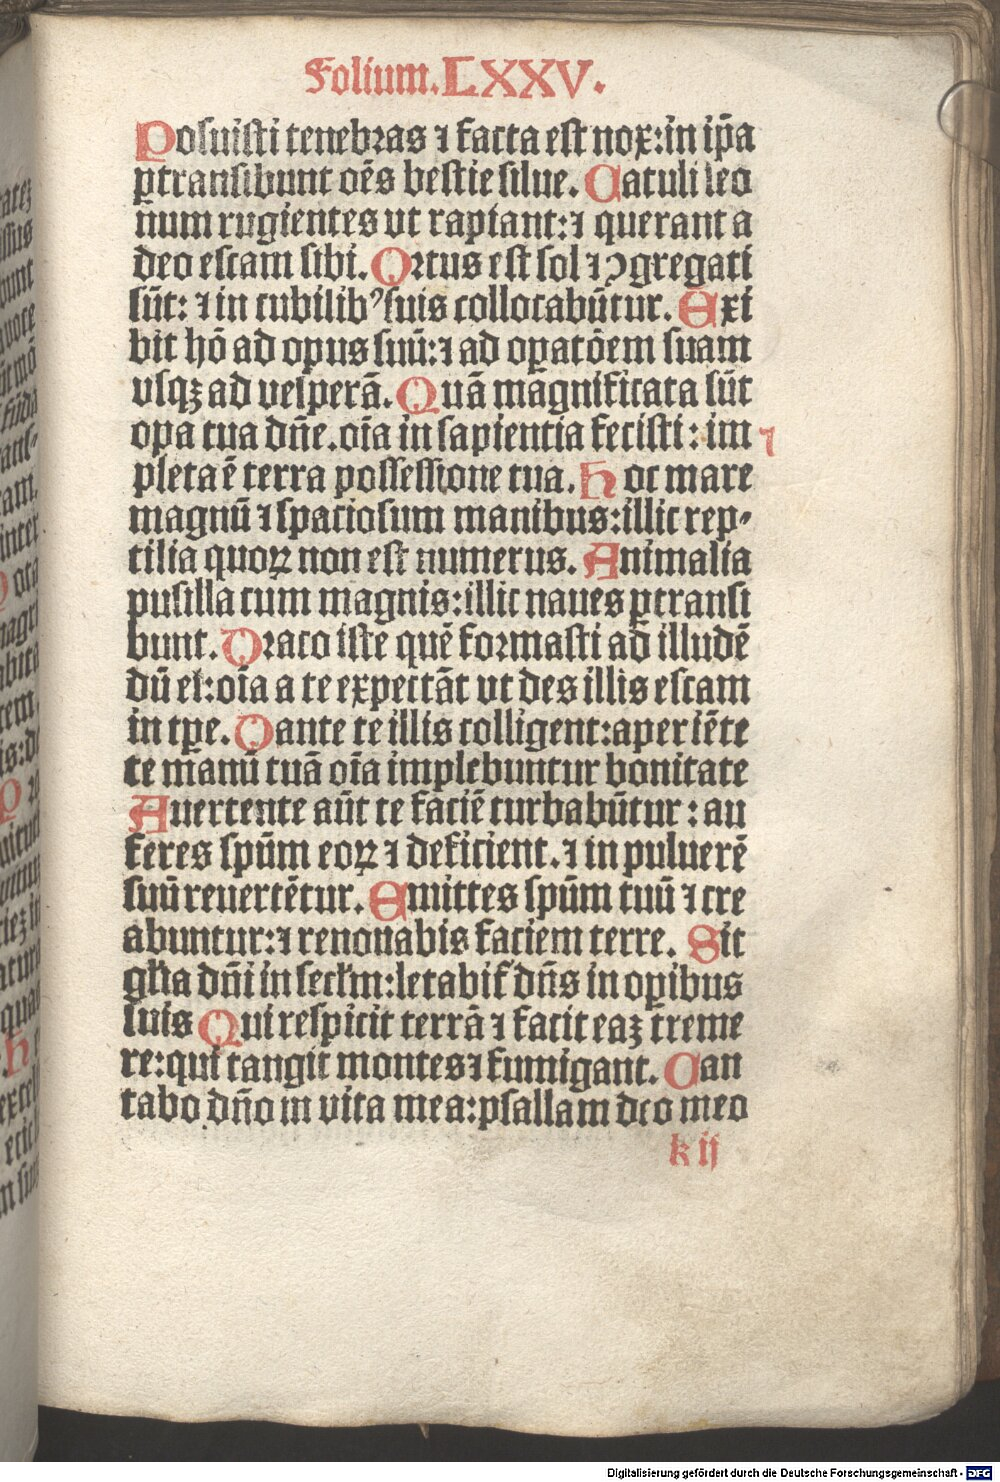 Folium. LXXV.
Posuisti tenebras ⁊ facta est nox: in ip̄a
ꝑtransibunt oēs bestie silue. Catuli leo
num rugientes vt rapiant: ⁊ querant a
deo escam sibi. Ortus est sol ⁊ ꝯgregati
sūt: ⁊ in cubilibꝰ suis collocabūtur. Exi
bit hō ad opus suū: ⁊ ad oꝑatōem suam
vsqꝫ ad vesperā. Quā magnificata sūt
oꝑa tua dn̄e. oīa in sapientia fecisti: im
pleta ē terra possessione tua. Hoc mare
magnū ⁊ spaciosum manibus: illic rep⸗
tilia quoꝝ non est numerus. Animalia
pusilla cum magnis: illic naues ꝑtransi
bunt. Draco iste quē formasti ad illudē
dū ei: oīa a te expectāt vt des illis escam
in tꝑe. Dante te illis colligent: aperiēte
te manū tuā oīa implebuntur bonitate
Auertente aūt te faciē turbabūtur: au
feres spūm eoꝝ ⁊ deficient. ⁊ in puluerē
suū reuertētur. Emittes spūm tuū ⁊ cre
abuntur: ⁊ renouabis faciem terre. Sit
gl̄ia dn̄i in secl̄m: letabit᷑ dn̄s in oꝑibus
suis Qui respicit terrā ⁊ facit eaꝫ treme
re: qui tangit montes ⁊ fumigant. Can
tabo dn̄o in vita mea: psallam deo meo
k ij
Digitalisierung gefördert durch die Deutsche Forschungsgemeinschaft - DFG